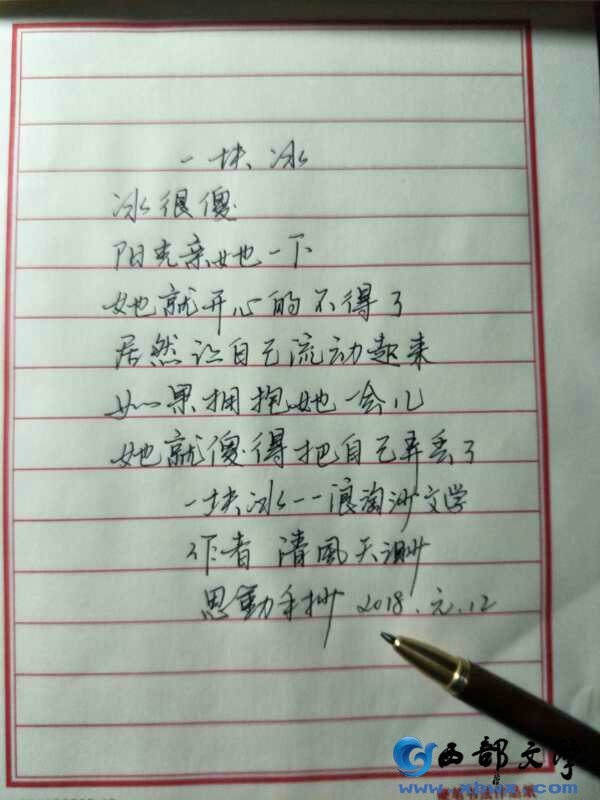 一块冰
冰很傻
阳光亲她一下
她就开心的不得了
居然让自己流动起来
如果拥抱她一会儿
她就傻得把自己弄丢了
一块冰——浪淘沙文学
作者 清風天
思動手抄 2018.元.12
西部文学
www.xbwx.com